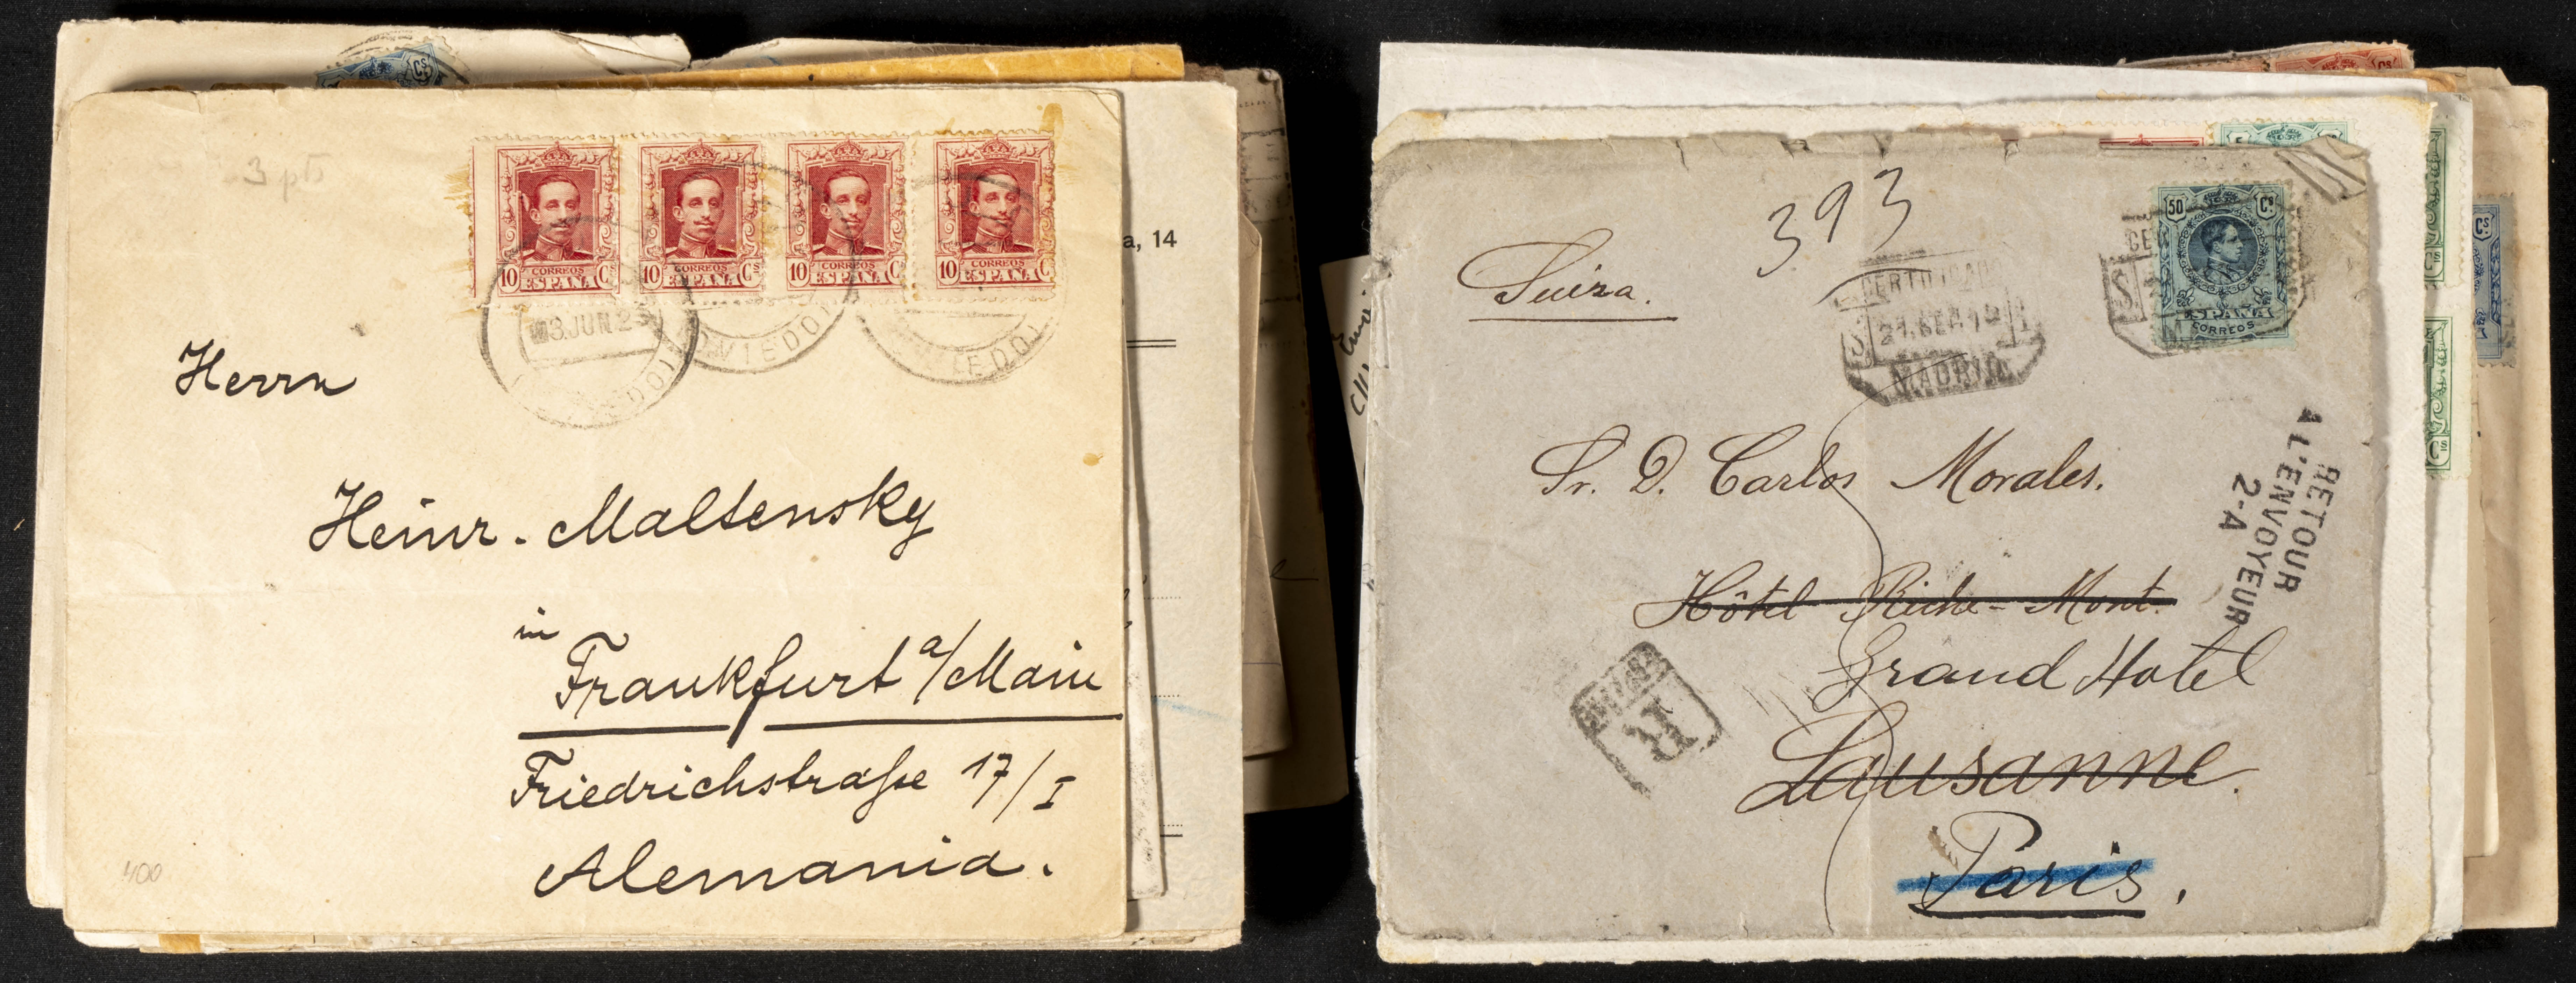 3 pts
10 CORREOS Cs
ESPAÑA
10 CORREOS Cs
ESPAÑA
10 CORREOS Cs
ESPAÑA
10 CORREOS C
ESPAÑA
3.JUN.2
OVIEDO
OVIEDO
Herrn
Heinr. Maltensky
in
Frankfurt a/Main
Friedrichstraße 17/I
Alemania.
400
Cs
a, 14
393
Suiza.
50 Cs
ESPAÑA
CORREOS
CERTIFICADO
S.
MADRID
Sr. D. Carlos Morales.
Hôtel Riche-Mont.
Grand Hotel
Lausanne.
Paris.
RETOUR
A L'ENVOYEUR
2-A
R
Cs
Cs
Cs
Cs